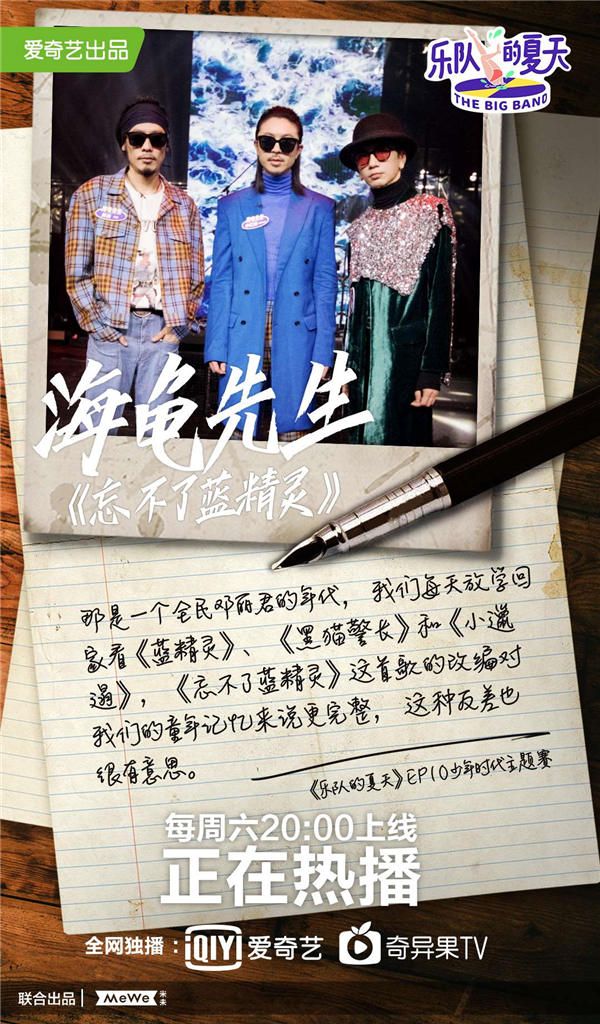 爱奇艺出品
乐队的夏天
THE BIG BAND
海龟先生
《忘不了蓝精灵》
那是一个全民邓丽君的年代，我们每天放学回
家看《蓝精灵》、《黑猫警长》和《小邋
遢》，《忘不了蓝精灵》这首歌的改编对
我们的童年记忆来说更完整，这种反差也
很有意思。
《乐队的夏天》EP10少年时代主题赛
每周六20:00上线
正在热播
全网独播：iQIYI 爱奇艺 奇异果TV
联合出品 MeWe 米未